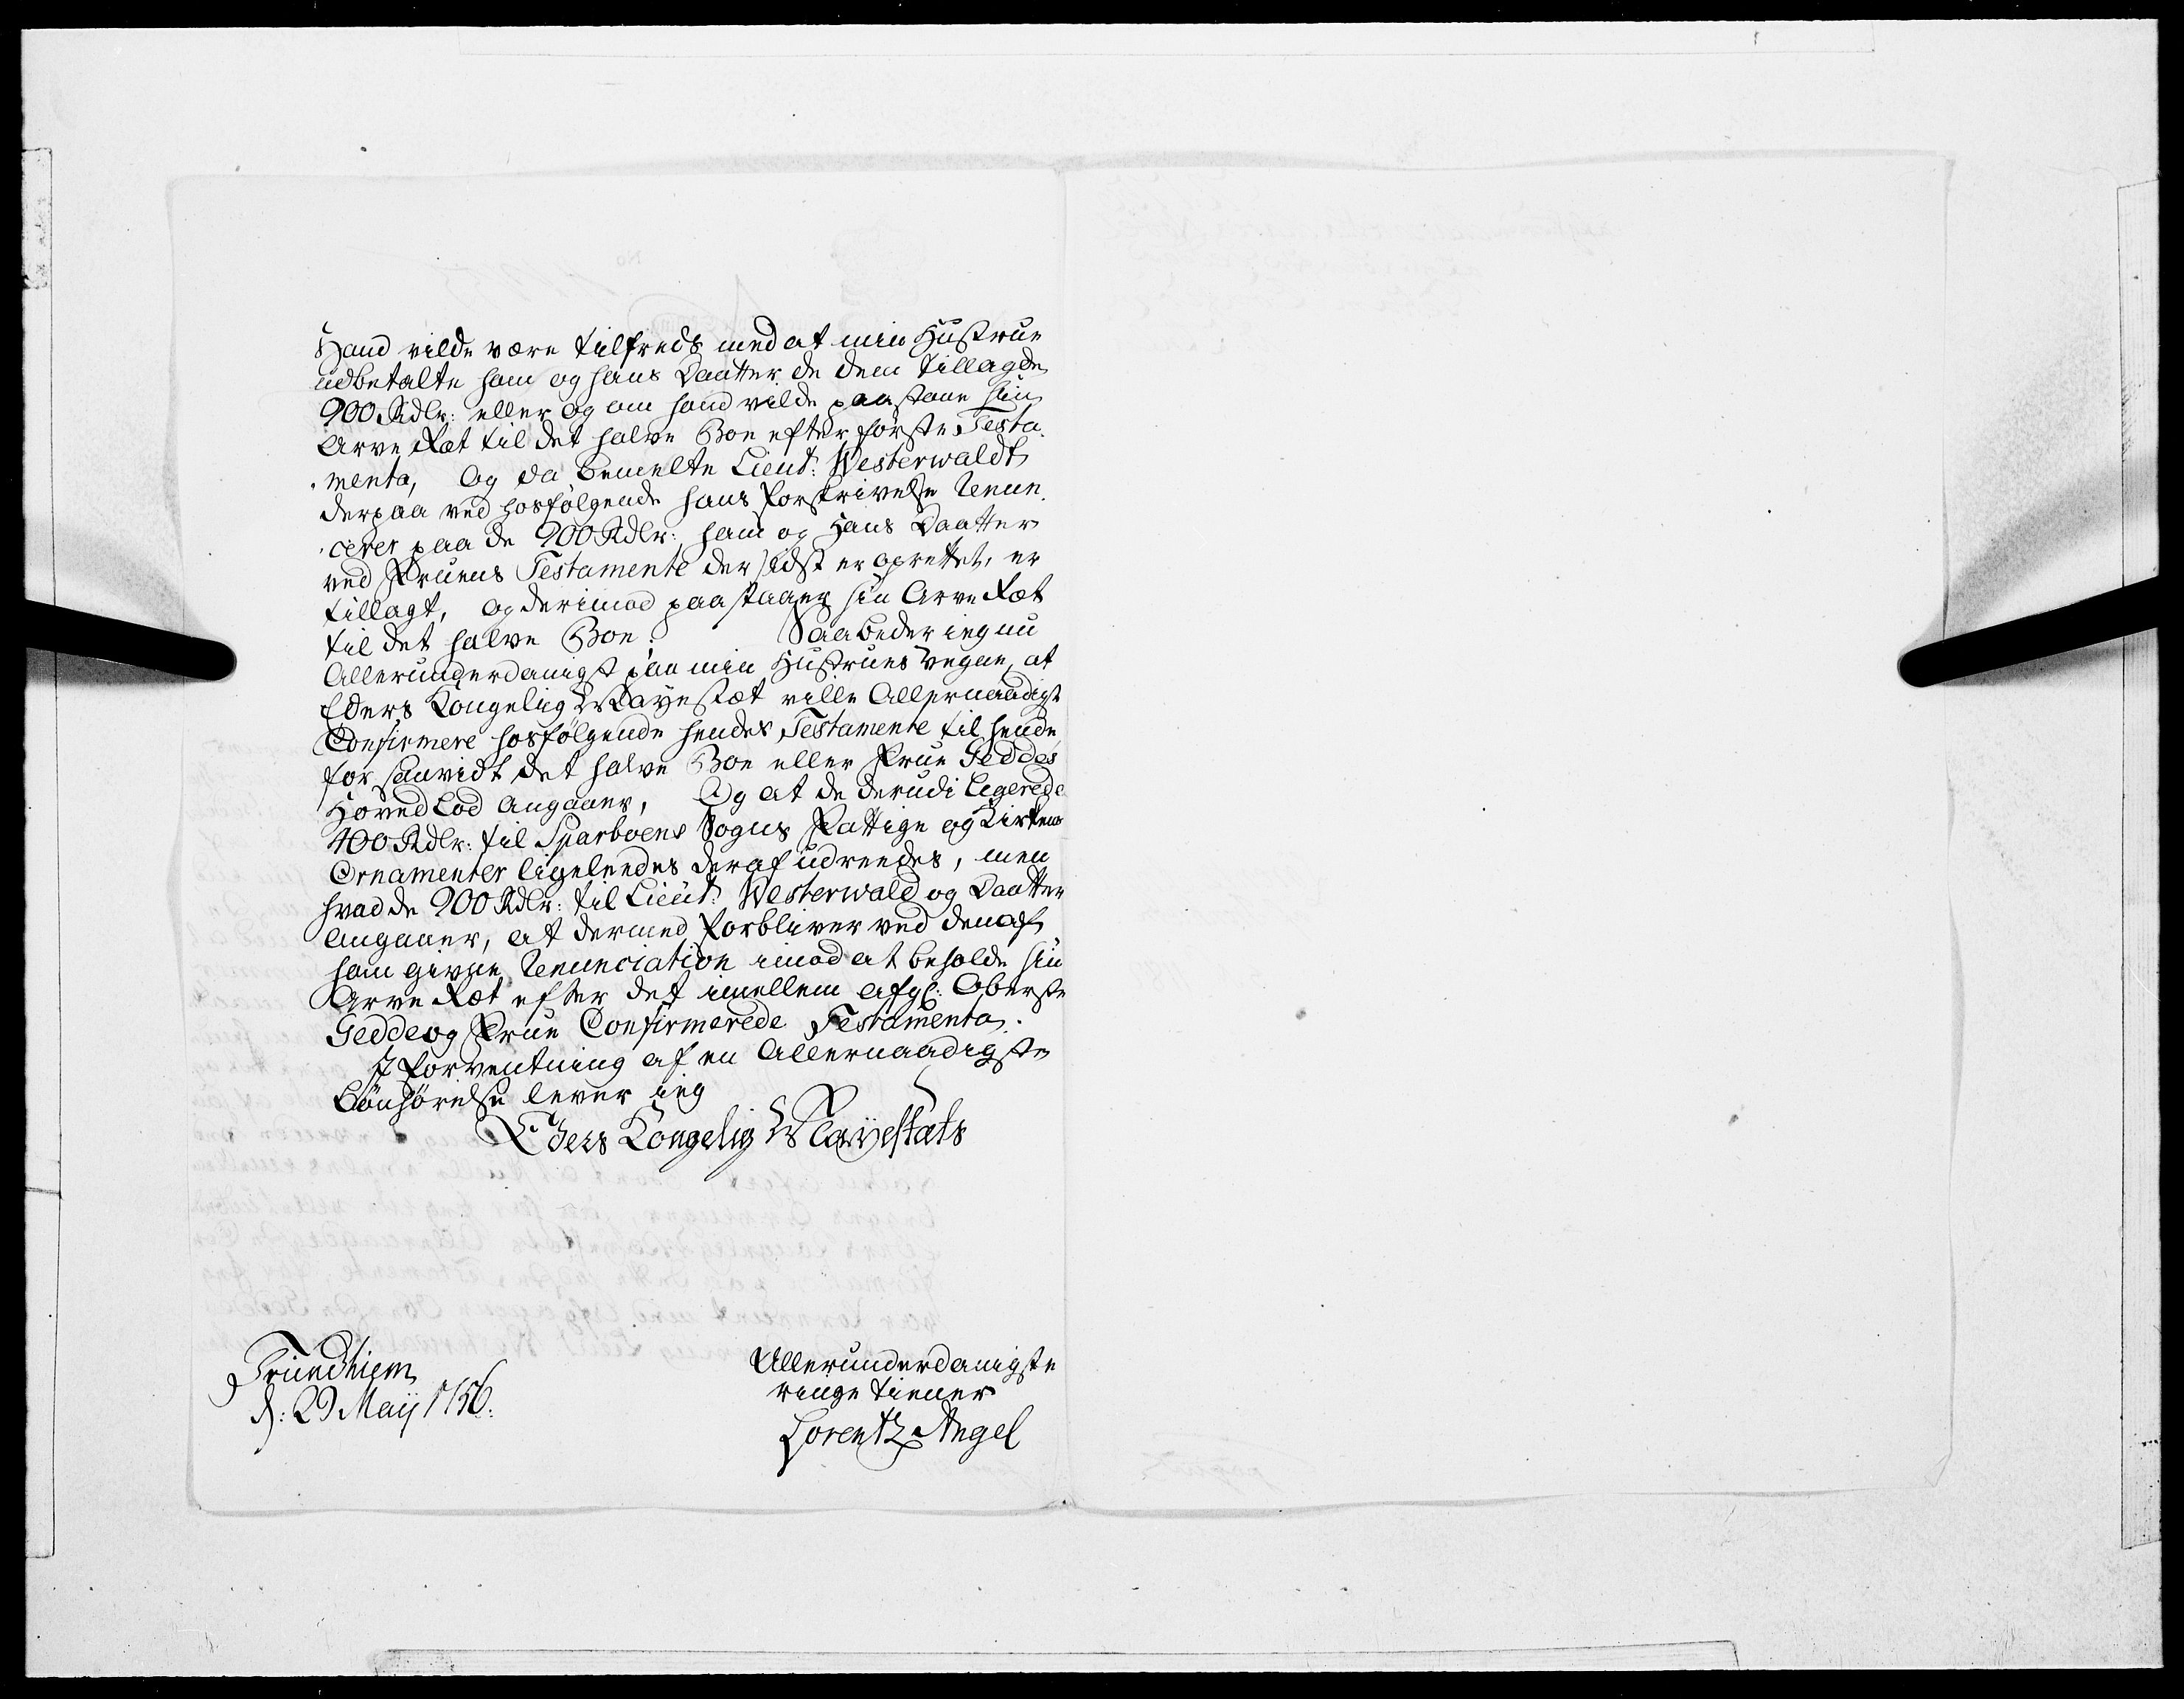 Hand vilde være tilfreds med at min Hustrue
udbetalte ham og hans Daatter de dem tillagde
900 Rdlr: eller og om hand vilde paastaae sin
Arve Ræt til det halve Boe efter første Testa¬
menta, Og da bemelte Lieut: Westerwaldt
derpaa ved hosfølgende hans Forskrivelse renun¬
cerer paa de 900 Rdlr: ham og Hans Daatter
ved Fruens Testamente der sidst er oprettet, er
tillagt, og derimod paastaaer sin Arve Ræt
til det halve Boe; Saa beder ieg nu
Allerunderdanigst paa min Hustrues vegne, at
Eders Kongelig Mayestæt ville Allernaadigst
Confirmere hosfølgende hendes Testamente til hende
for saavidt det halve Boe eller Frue Geddes
Hoved Lod angaaer, Og at de derudi legerede
400 Rdlr: til Sparboens Sogns Fattige og Kirkens
Ornamenter ligeleedes deraf udreedes, men
hvad de 900 Rdlr: til Lieut: Westerwald og Daatter
angaaer, at dermed forbliver ved den af
ham givne Renunciation imod at beholde sin
Arve Ræt efter det imellem afg: Oberste
Gedde og Frue Confirmerede Testamenta.
I forventning af en Allernaadigste
Bønhørelse lever ieg
Eders Kongelig Mayestæts
Allerunderdanigste
ringe tiener
Lorentz Angel
Trundhiem
d: 29 Maij 1756.